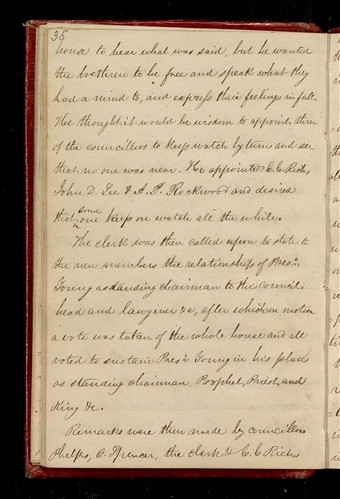 35
house to hear what was said, but he wanted
the brethren to be free and speak what they
had a mind to, and express their feelings in full.
He thought it would be wisdom to appoint three
of the councillors to keep watch by turn and see
that no one was near. He appointed C. C. Rich,
John D. Lee & A. P. Rockwood and desired
that some one keep on watch all the while.
The clerk was then called upon to state to
the new members the relationship of Presn.
Young as standing chairman to the council
head and lawgiver &c, after which on motion
a vote was taken of the whole house and all
voted to sustain Presn. Young in his place
as standing chairman, Prophet, Priest, and
King &c.
Remarks were then made by councillors
Phelps, O. Spencer, the clerk & C. C. Rich